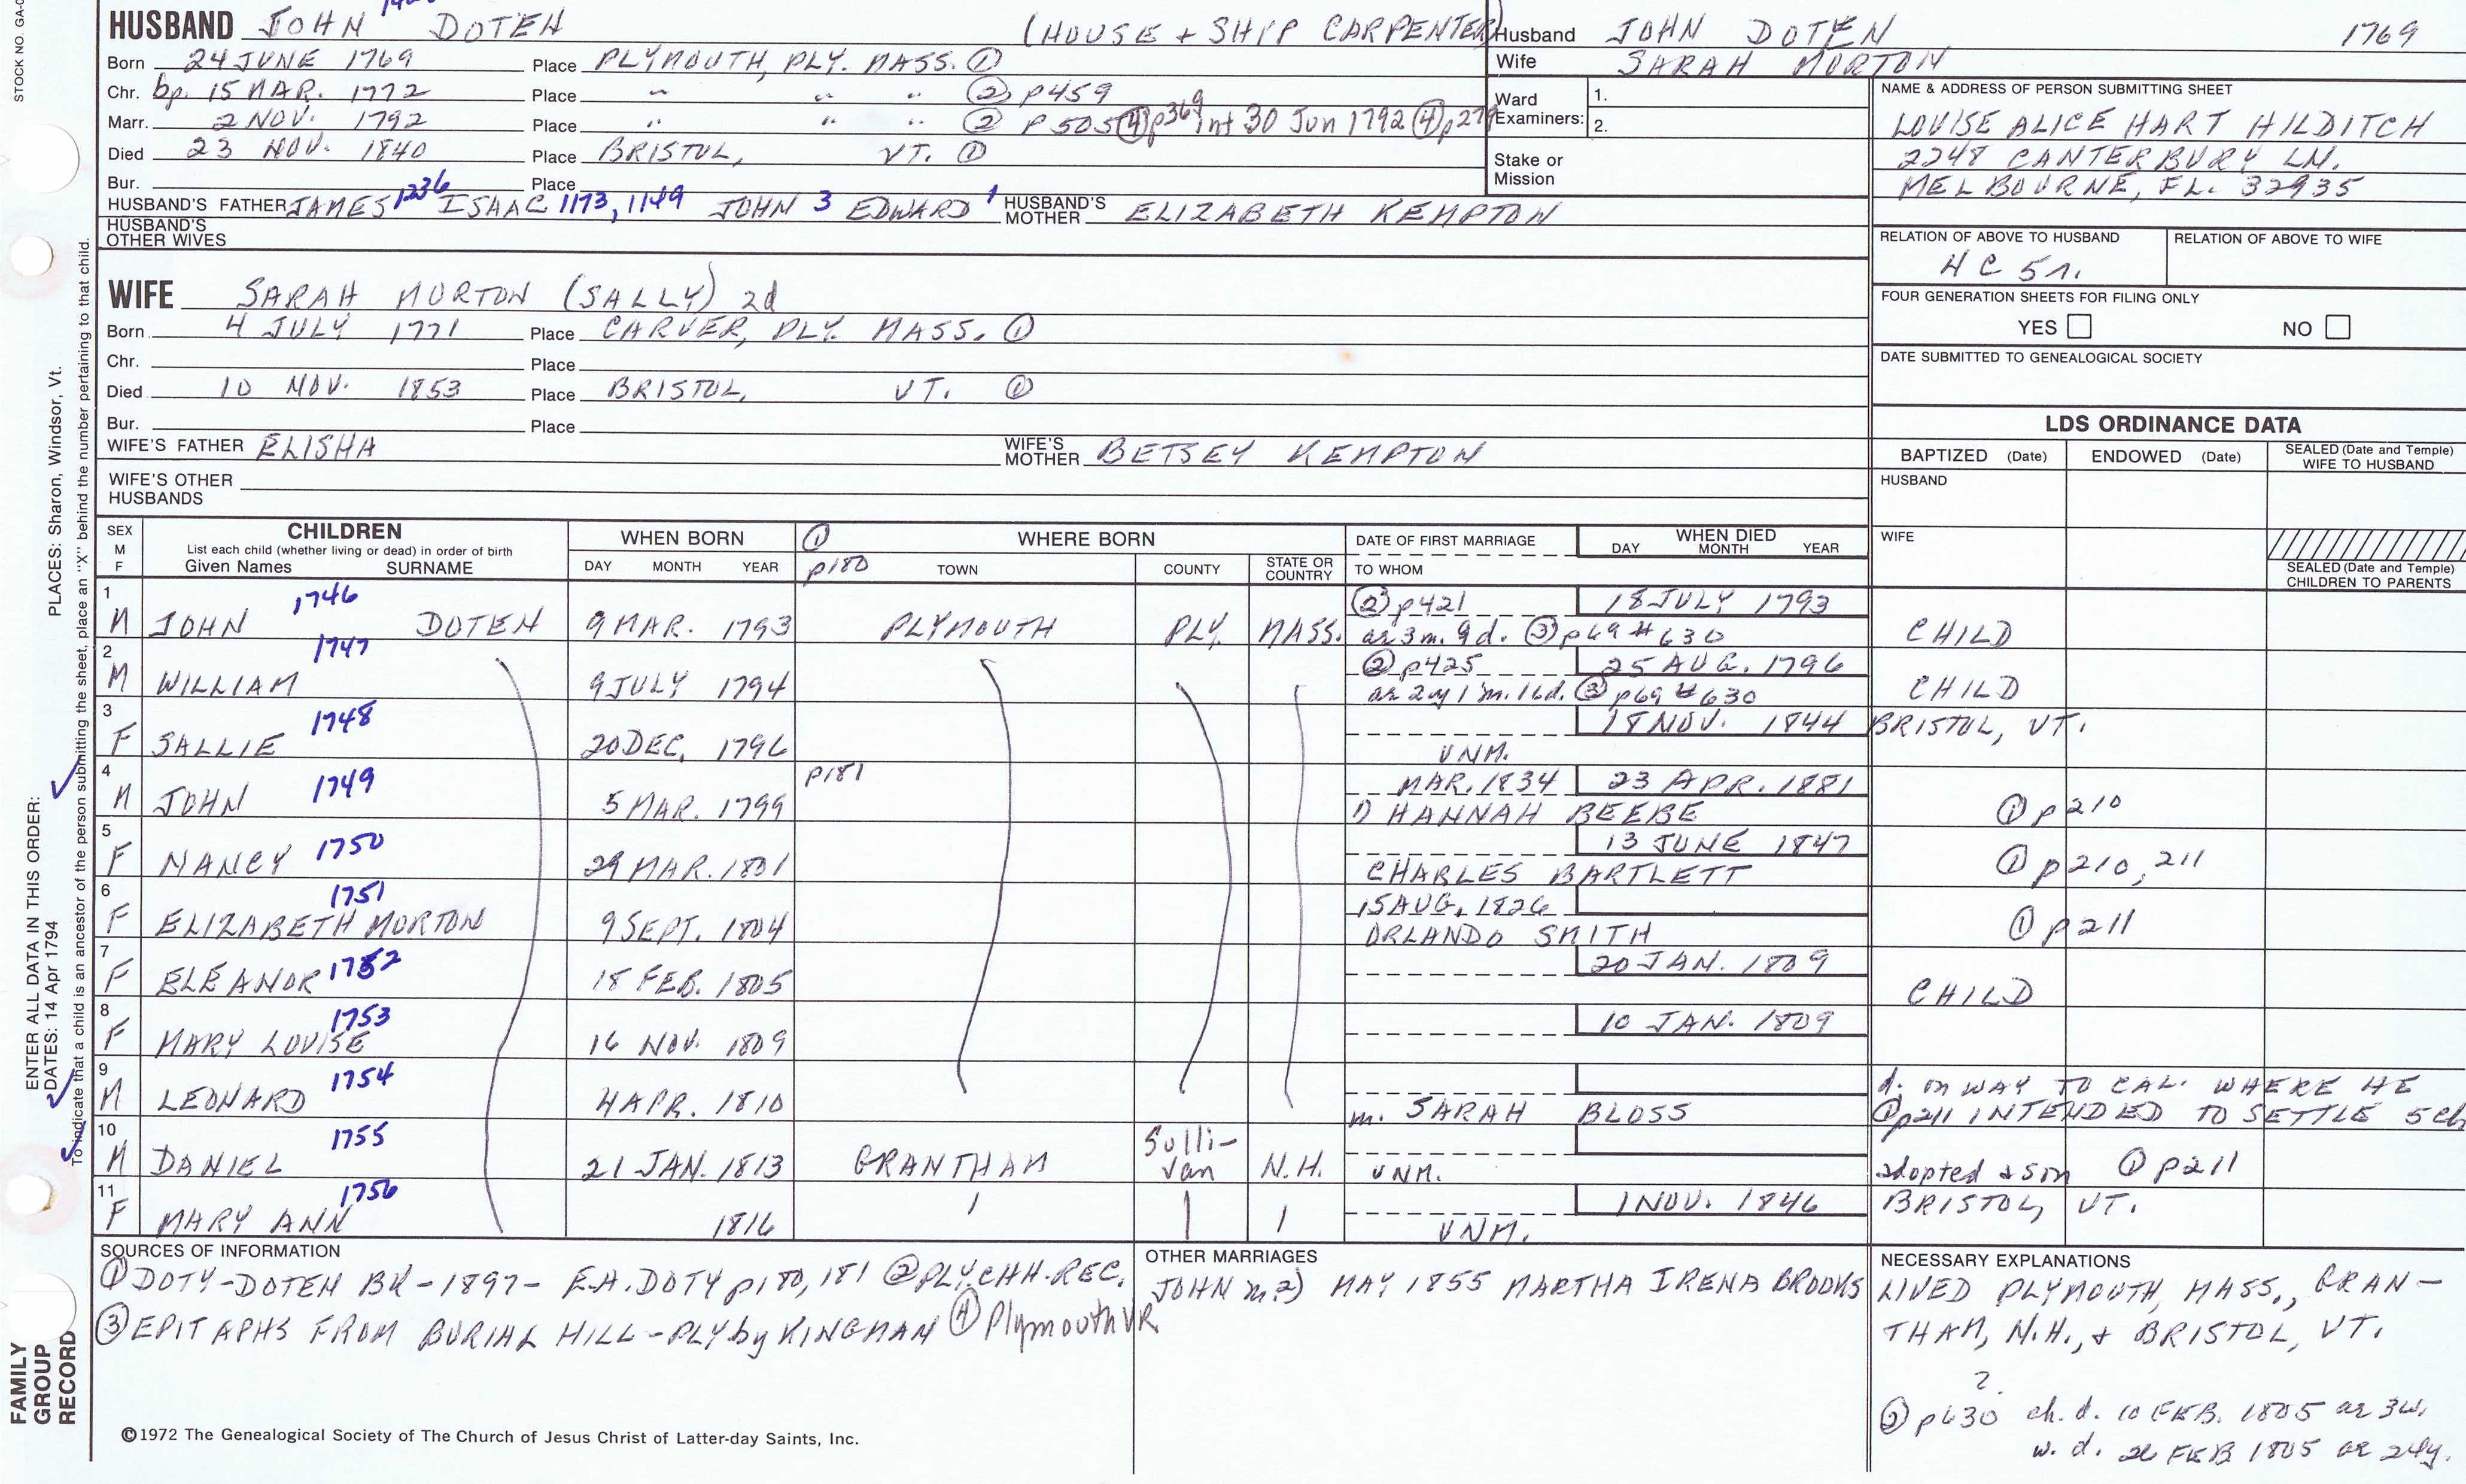 STOCK NO. GA-
HUSBAND JOHN DOTEN (HOUSE + SHIP CARPENTER)
Born 24 JUNE 1769 Place PLYMOUTH, PLY. MASS. ①
Chr. bp. 15 MAR. 1772 Place " " " ② p459
Marr. 2 NOV. 1792 Place " " " ② p505 ④p369 int 30 Jun 1792 ④p279
Died 23 NOV. 1840 Place BRISTOL, VT. ①
Bur. Place
HUSBAND'S FATHER JAMES 1236 ISAAC 1173, 1149 JOHN 3 EDWARD 1 HUSBAND'S MOTHER ELIZABETH KEMPTON
HUSBAND'S OTHER WIVES
Husband JOHN DOTEN 1769
Wife SARAH MORTON
Ward Examiners: 1.
2.
Stake or Mission
NAME & ADDRESS OF PERSON SUBMITTING SHEET
LOUISE ALICE HART HILDITCH
2248 CANTERBURY LN.
MELBOURNE, FL. 32935
RELATION OF ABOVE TO HUSBAND RELATION OF ABOVE TO WIFE
FOUR GENERATION SHEETS FOR FILING ONLY
YES NO
DATE SUBMITTED TO GENEALOGICAL SOCIETY
WIFE SARAH MORTON (SALLY) 2d
Born 4 JULY 1771 Place CARVER, PLY. MASS. ①
Chr. Place
Died 10 NOV. 1853 Place BRISTOL, VT. ①
Bur. Place
WIFE'S FATHER ELISHA WIFE'S MOTHER BETSEY KEMPTON
WIFE'S OTHER HUSBANDS
LDS ORDINANCE DATA
BAPTIZED (Date) ENDOWED (Date) SEALED (Date and Temple) WIFE TO HUSBAND
HUSBAND
WIFE
SEALED (Date and Temple) CHILDREN TO PARENTS
SEX M F CHILDREN List each child (whether living or dead) in order of birth Given Names SURNAME
WHEN BORN DAY MONTH YEAR
① p180 WHERE BORN TOWN COUNTY STATE OR COUNTRY
DATE OF FIRST MARRIAGE TO WHOM
WHEN DIED DAY MONTH YEAR
1 1746 ② p421 18 JULY 1793
M JOHN DOTEN 9 MAR. 1793 PLYMOUTH PLY. MASS. ae 3 m. 9 d. ③ p69 #630 CHILD
2 1747 ② p425 25 AUG. 1796
M WILLIAM 9 JULY 1794 ae 2 y 1 m. 16 d. ③ p69 #630 CHILD
3 1748 18 NOV. 1844 BRISTOL, VT.
F SALLIE 20 DEC. 1796 UNM.
4 1749 p181 MAR. 1834 23 APR. 1881
M JOHN 5 MAR. 1799 1) HANNAH BEEBE ① p210
5 1750 13 JUNE 1847
F NANCY 29 MAR. 1801 CHARLES BARTLETT ① p210, 211
6 1751 15 AUG. 1826
F ELIZABETH MORTON 9 SEPT. 1804 ORLANDO SMITH ① p211
7 1752 20 JAN. 1809
F ELEANOR 18 FEB. 1805 CHILD
8 1753 10 JAN. 1809
F MARY LOUISE 16 NOV. 1809
9 1754 d. on WAY TO CAL. WHERE HE
M LEONARD 4 APR. 1810 m. SARAH BLOSS ① p211 INTENDED TO SETTLE 5 ch
10 1755
M DANIEL 21 JAN. 1813 GRANTHAM Sullivan N.H. UNM. adopted a son ① p211
11 1756 1 NOV. 1846 BRISTOL, VT.
F MARY ANN 1816 UNM.
SOURCES OF INFORMATION
① DOTY-DOTEN BK-1897- E.A. DOTY p180, 181 ② PLY. CHH. REC.
③ EPITAPHS FROM BURIAL HILL-PLY by KINGMAN ④ Plymouth VR
OTHER MARRIAGES
JOHN m. 2) MAY 1855 MARTHA IRENA BROOKS
NECESSARY EXPLANATIONS
LIVED PLYMOUTH, MASS., GRAN-
THAM, N.H., + BRISTOL, VT.
?
p630 ch. d. 10 FEB. 1805 ae 3w.
w. d. 26 FEB 1805 ae 24y.
©1972 The Genealogical Society of The Church of Jesus Christ of Latter-day Saints, Inc.
FAMILY GROUP RECORD
ENTER ALL DATA IN THIS ORDER:
DATES: 14 Apr 1794 PLACES: Sharon, Windsor, Vt.
To indicate that a child is an ancestor of the person submitting the sheet, place an "X" behind the number pertaining to that child.